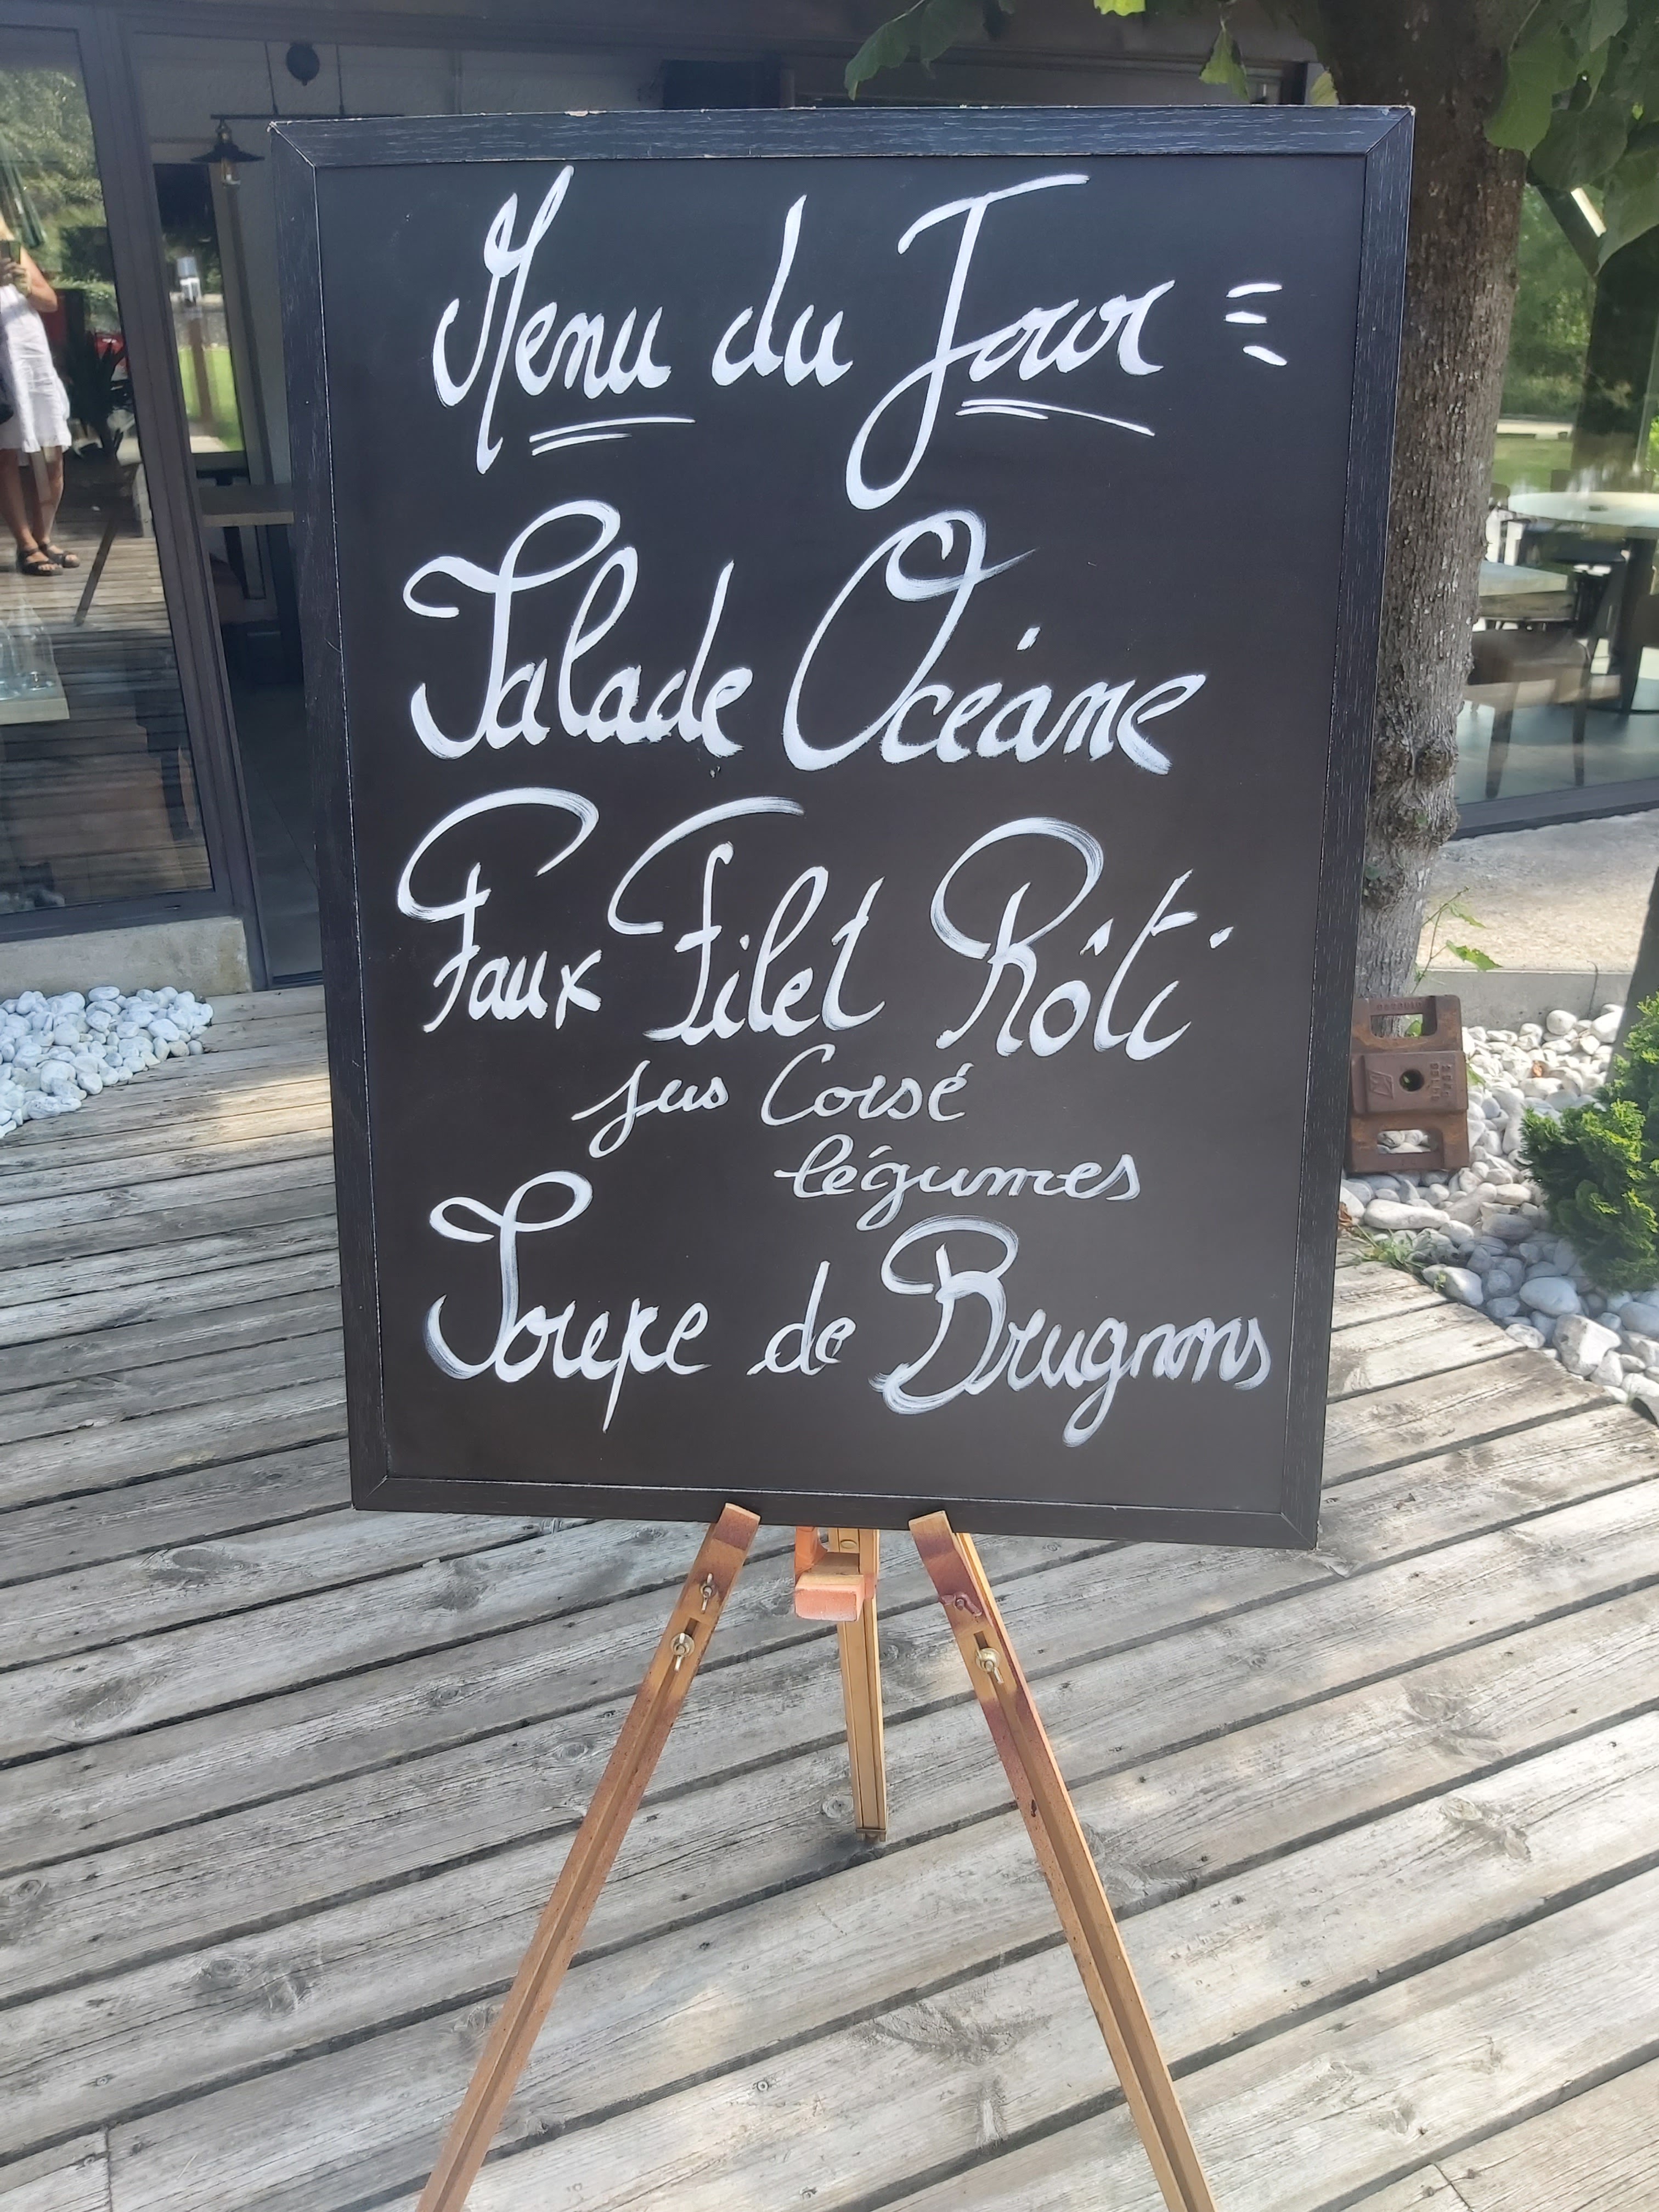 Menu du Jour
Salade Océane
Faux Filet Rôti
jus Corsé
légumes
Soupe de Brugnons